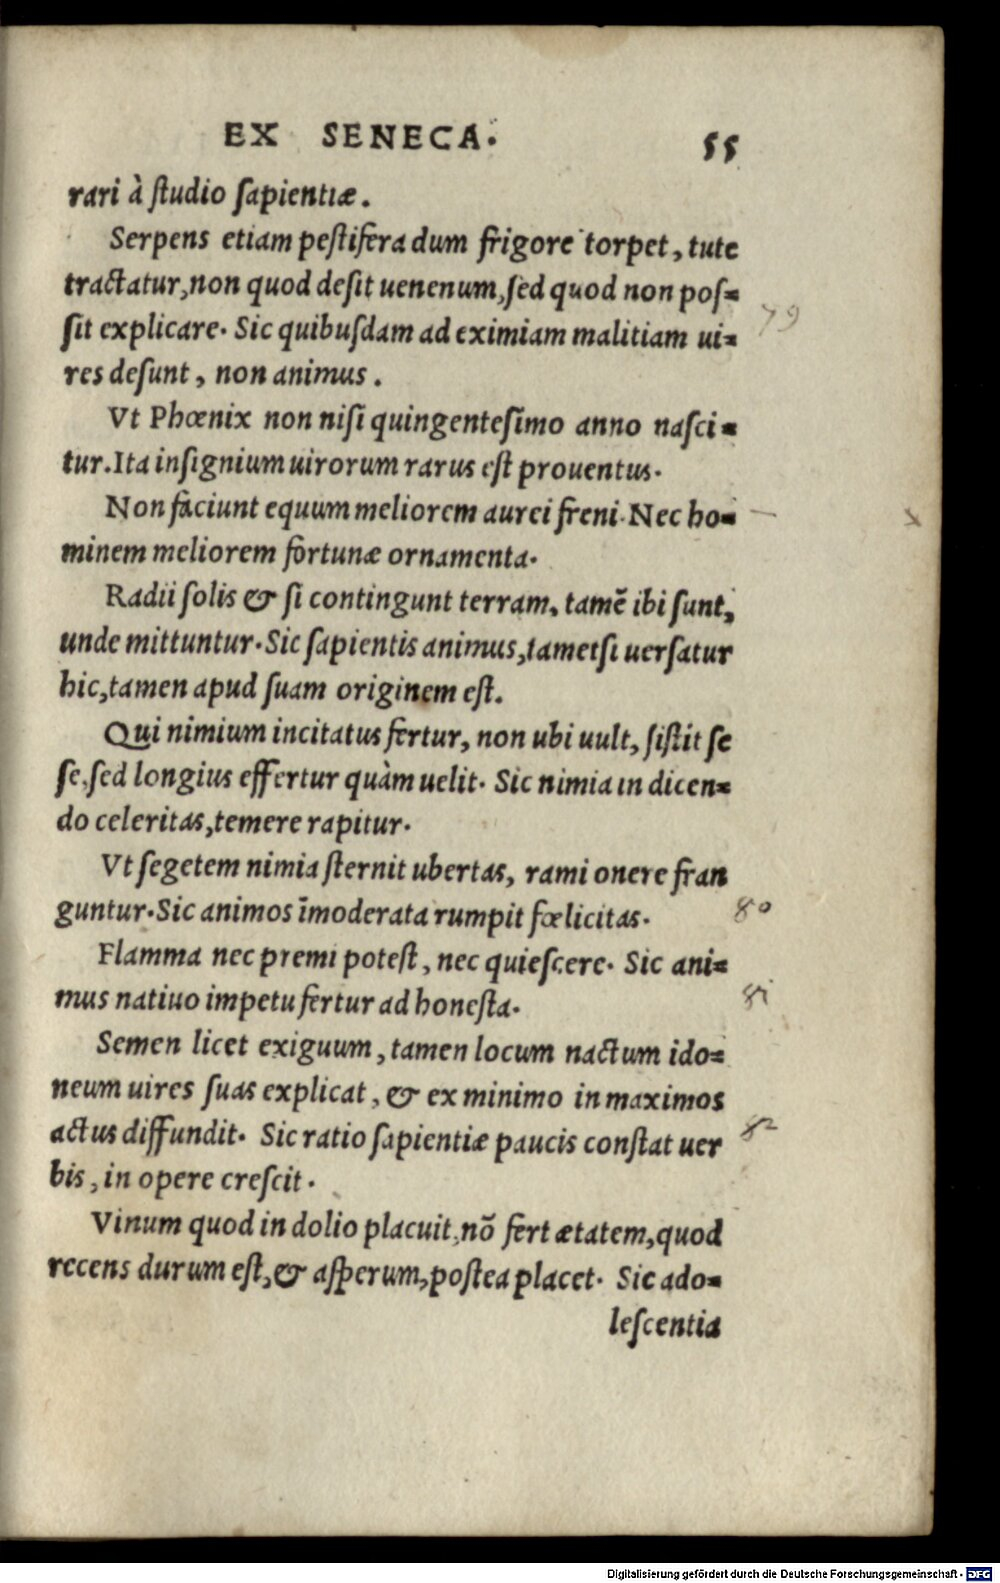 EX SENECA. 55
rari à ſtudio ſapientiæ.
Serpens etiam peſtifera dum frigore torpet, tute
tractatur, non quod deſit uenenum, ſed quod non poſ=
ſit explicare. Sic quibuſdam ad eximiam malitiam ui=
79
res deſunt, non animus.
Vt Phœnix non niſi quingenteſimo anno naſci=
tur. Ita inſignium uirorum rarus eſt prouentus.
Non faciunt equum meliorem aurei freni. Nec ho=
minem meliorem fortunæ ornamenta.
Radii ſolis & ſi contingunt terram, tamẽ ibi ſunt,
unde mittuntur. Sic ſapientis animus, tametſi uerſatur
hic, tamen apud ſuam originem eſt.
Qui nimium incitatus fertur, non ubi uult, ſiſtit ſe
ſe, ſed longius effertur quàm uelit. Sic nimia in dicen=
do celeritas, temere rapitur.
Vt ſegetem nimia ſternit ubertas, rami onere fran
guntur. Sic animos ĩmoderata rumpit fœlicitas. 80
Flamma nec premi poteſt, nec quieſcere. Sic ani=
mus natiuo impetu fertur ad honeſta. 81
Semen licet exiguum, tamen locum nactum ido=
neum uires ſuas explicat, & ex minimo in maximos
actus diffundit. Sic ratio ſapientiæ paucis conſtat uer 82
bis, in opere creſcit.
Vinum quod in dolio placuit, nõ fert ætatem, quod
recens durum eſt, & aſperum, poſtea placet. Sic ado=
leſcentia
Digitalisierung gefördert durch die Deutsche Forschungsgemeinschaft - DFG